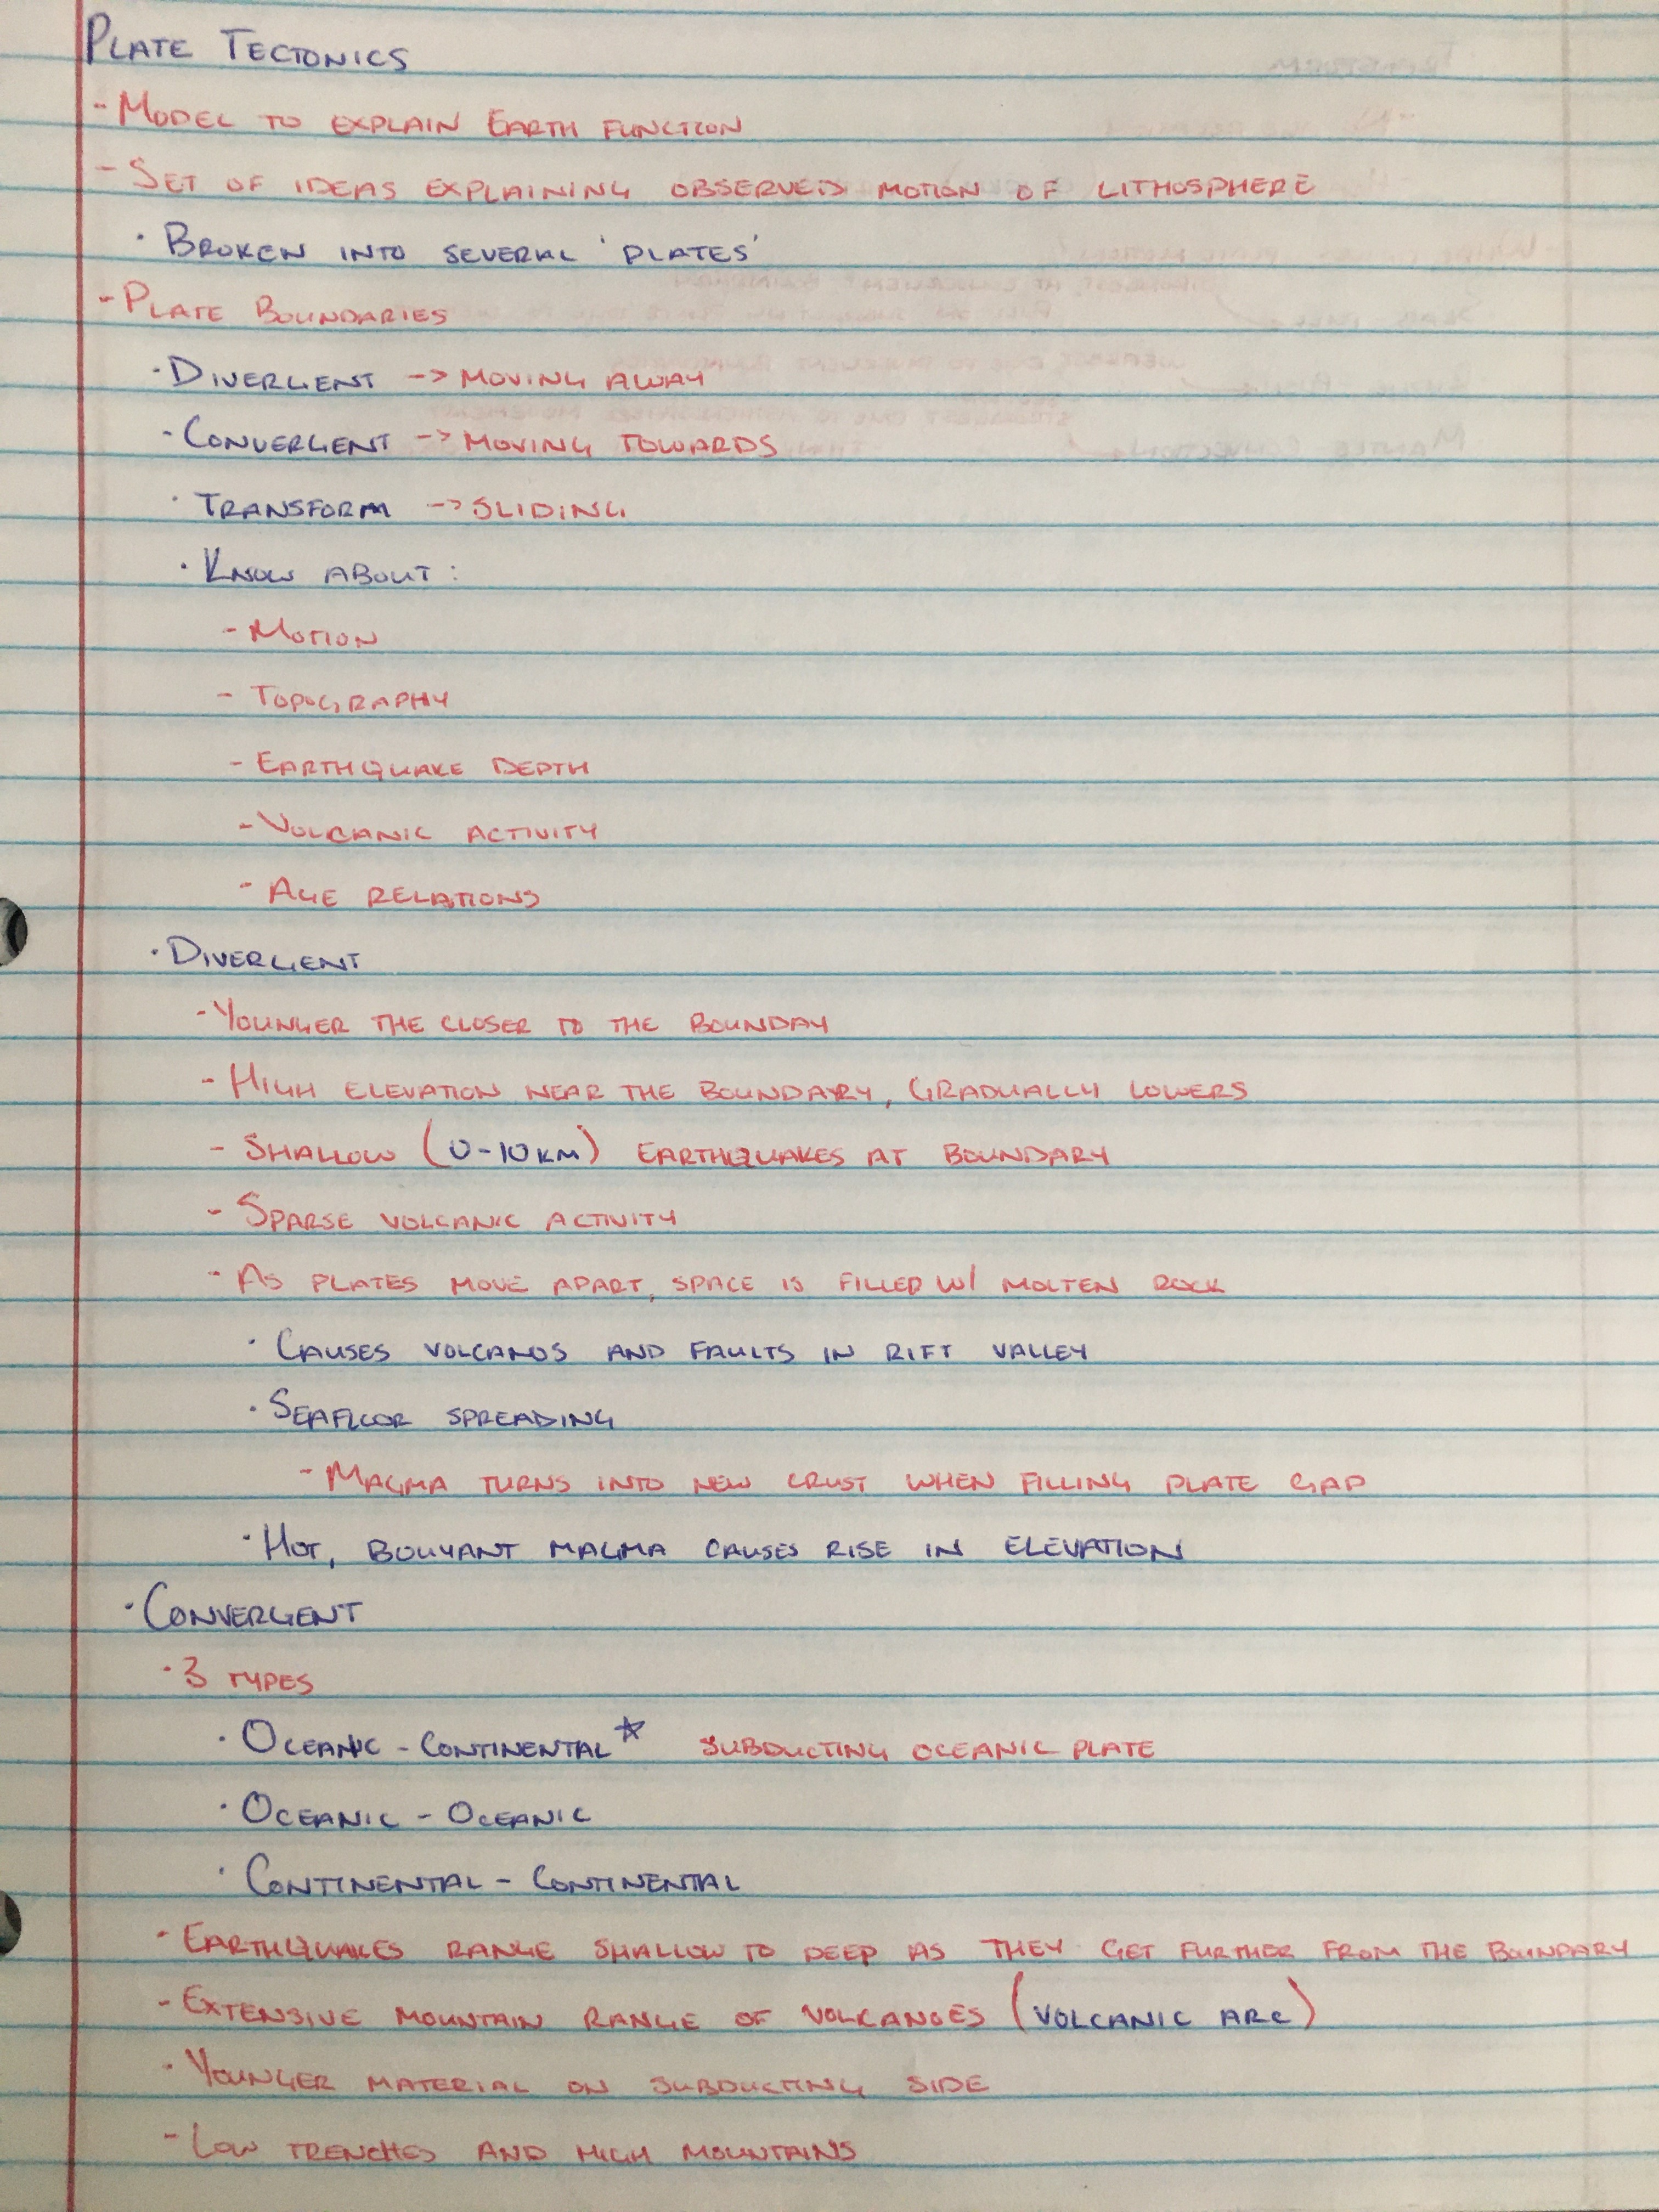 PLATE TECTONICS
- MODEL TO EXPLAIN EARTH FUNCTION
- SET OF IDEAS EXPLAINING OBSERVED MOTION OF LITHOSPHERE
· BROKEN INTO SEVERAL 'PLATES'
- PLATE BOUNDARIES
· DIVERGENT -> MOVING AWAY
- CONVERGENT -> MOVING TOWARDS
· TRANSFORM -> SLIDING
· KNOW ABOUT:
- MOTION
- TOPOGRAPHY
- EARTHQUAKE DEPTH
- VOLCANIC ACTIVITY
- AGE RELATIONS
· DIVERGENT
- YOUNGER THE CLOSER TO THE BOUNDAY
- HIGH ELEVATION NEAR THE BOUNDARY, GRADUALLY LOWERS
- SHALLOW (0-10KM) EARTHQUAKES AT BOUNDARY
- SPARSE VOLCANIC ACTIVITY
- AS PLATES MOVE APART, SPACE IS FILLED W/ MOLTEN ROCK
· CAUSES VOLCANOS AND FAULTS IN RIFT VALLEY
· SEAFLOOR SPREADING
- MAGMA TURNS INTO NEW CRUST WHEN FILLING PLATE GAP
· HOT, BOUYANT MAGMA CAUSES RISE IN ELEVATION
· CONVERGENT
· 3 TYPES
· OCEANIC - CONTINENTAL ☆ SUBDUCTING OCEANIC PLATE
· OCEANIC - OCEANIC
· CONTINENTAL - CONTINENTAL
- EARTHQUAKES RANGE SHALLOW TO DEEP AS THEY GET FURTHER FROM THE BOUNDARY
- EXTENSIVE MOUNTAIN RANGE OF VOLCANOES (VOLCANIC ARC)
· YOUNGER MATERIAL ON SUBDUCTING SIDE
- LOW TRENCHES AND HIGH MOUNTAINS